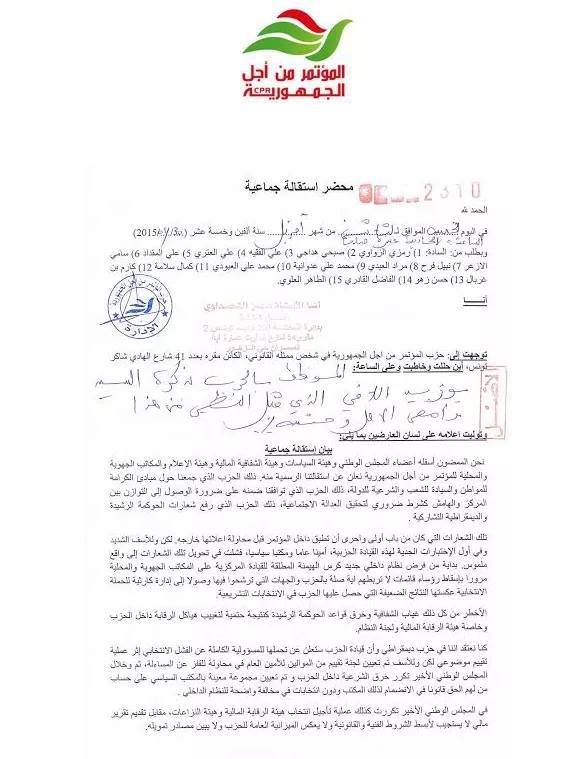 المؤتمر من أجل
الجمهورية
CPR
محضر استقالة جماعية
2310
الحمد لله
في اليوم الموافق لـ من شهر أفريل سنة ألفين وخمسة عشر (2015/04/30)
وبطلب من: السادة: 1) رمزي الزواوي 2) صبحي هداجي 3) علي الفقيه 4) علي العتري 5) علي المقداد 6) سامي
الازعر 7) نبيل فرح 8) مراد العبدي 9) محمد علي عدوانية 10) محمد علي العبودي 11) كمال سلامة 12) كارم بن
غربال 13) حسن زهو 14) الفاضل القادري 15) الطاهر العلوي.
أنـــا
الإدارة
توجهت إلى: حزب المؤتمر من أجل الجمهورية في شخص ممثله القانوني، الكائن مقره بعدد 41 شارع الهادي شاكر
تونس، أين حللت وخاطبت وعلى الساعة:
وتوليت اعلامه على لسان العارضين بما يلي:
بيان إستقالة جماعية
نحن الممضون أسفله أعضاء المجلس الوطني وهيئة السياسات وهيئة الشفافية المالية وهيئة الاعلام والمكاتب الجهوية
والمحلية للمؤتمر من أجل الجمهورية نعلن عن استقالتنا الرسمية منه. ذلك الحزب الذي جمعنا حول مبادئ الكرامة
للمواطن والسيادة للشعب والشرعية للدولة، ذلك الحزب الذي توافقنا ضمنه على ضرورة الوصول إلى التوازن بين
المركز والهامش كشرط ضروري لتحقيق العدالة الاجتماعية، ذلك الحزب الذي رفع شعارات الحوكمة الرشيدة
والديمقراطية التشاركية .
تلك الشعارات التي كان من باب أولى واحرى أن تطبق داخل المؤتمر قبل محاولة اعلانها خارجه. لكن وللأسف الشديد
وفي أول الإختبارات الجدية لهذه القيادة الحزبية، أمينا عاما ومكتبا سياسيا، فشلت في تحويل تلك الشعارات إلى واقع
ملموس. بداية من فرض نظام داخلي جديد كرس الهيمنة المطلقة للقيادة المركزية على المكاتب الجهوية والمحلية
مرورا بإسقاط رؤساء قائمات لا تربطهم اية صلة بالحزب والجهات التي ترشحوا فيها وصولا إلى إدارة كارثية للحملة
الانتخابية عكستها النتائج الضعيفة التي حصل عليها الحزب في الانتخابات التشريعية.
الأخطر من كل ذلك غياب الشفافية وخرق قواعد الحوكمة الرشيدة كنتيجة حتمية لتغييب هياكل الرقابة داخل الحزب
وخاصة هيئة الرقابة المالية ولجنة النظام.
كنا نعتقد اننا في حزب ديمقراطي وأن قيادة الحزب ستعلن عن تحملها للمسؤولية الكاملة عن الفشل الانتخابي إثر عملية
تقييم موضوعي لكن وللأسف تم تعيين لجنة تقييم من الموالين للأمين العام في محاولة للقفز عن المساءلة، ثم وخلال
المجلس الوطني الأخير تكرر خرق الشرعية داخل الحزب و تم تعيين مجموعة معينة بالمكتب السياسي على حساب
من لهم الحق قانونا في الانضمام لذلك المكتب ودون انتخابات في مخالفة واضحة للنظام الداخلي .
في المجلس الوطني الأخير تكررت كذلك عملية تأجيل انتخاب هيئة الرقابة المالية وهيئة النزاعات، مقابل تقديم تقرير
مالي لا يستجيب لأبسط الشروط الفنية والقانونية ولا يعكس الميزانية العامة للحزب ولا يبين مصادر تمويله.